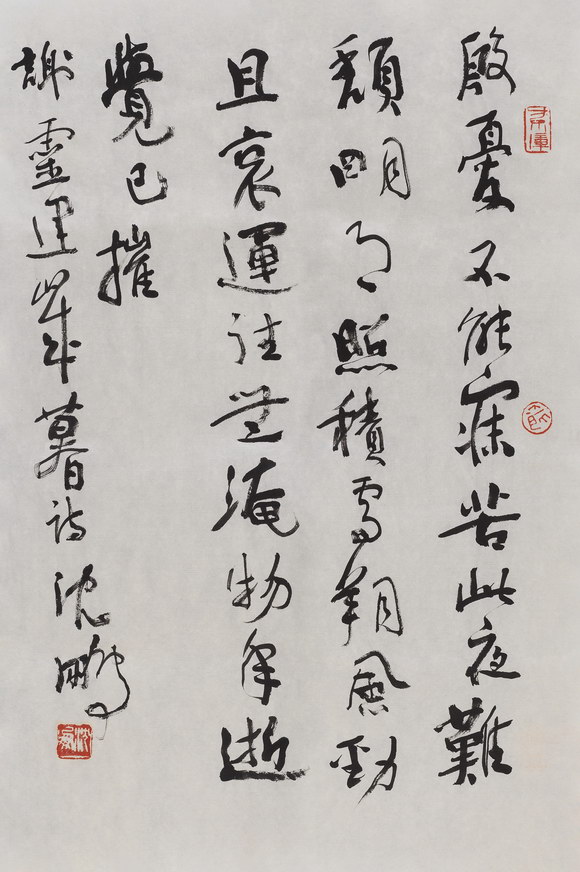 殷憂不能寐苦此夜難
頽明月照積雪朔風勁
且哀運往無淹物年逝
覺已摧
謝靈運歲暮詩 沈鵬